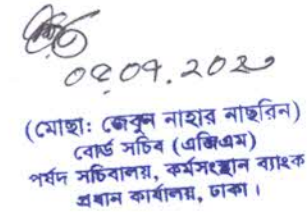 ০৫.০৭.২০২
(মোছা: জেবুন নাহার নাছরিন)
বোর্ড সচিব (এজিএম)
পর্ষদ সচিবালয়, কর্মসংস্থান ব্যাংক
প্রধান কার্যালয়, ঢাকা।